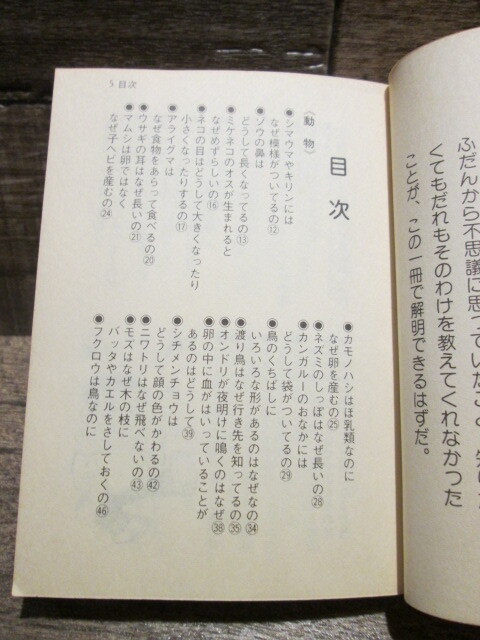 ふだんから不思議に思っていたこと、知り
くてもだれもそのわけを教えてくれなかった
ことが、この一冊で解明できるはずだ。
5 目次
目次
〈動物〉
●シマウマやキリンには
なぜ模様がついてるの⑫
●ゾウの鼻は
どうして長くなってるの⑬
●ミケネコのオスが生まれると
なぜめずらしいの⑯
●ネコの目はどうして大きくなったり
小さくなったりするの⑰
●アライグマは
なぜ食物をあらって食べるの⑳
●ウサギの耳はなぜ長いの㉑
●マムシは卵ではなく
なぜ子ヘビを産むの㉔
●カモノハシはほ乳類なのに
なぜ卵を産むの㉕
●ネズミのしっぽはなぜ長いの㉘
●カンガルーのおなかには
どうして袋がついてるの㉙
●鳥のくちばしに
いろいろな形があるのはなぜなの㉞
●渡り鳥はなぜ行き先を知ってるの㉟
●オンドリが夜明けに鳴くのはなぜ㊳
●卵の中に血がはいっていることが
あるのはどうして㊴
●シチメンチョウは
どうして顔の色がかわるの㊷
●ニワトリはなぜ飛べないの㊸
●モズはなぜ木の枝に
バッタやカエルをさしておくの㊻
●フクロウは鳥なのに